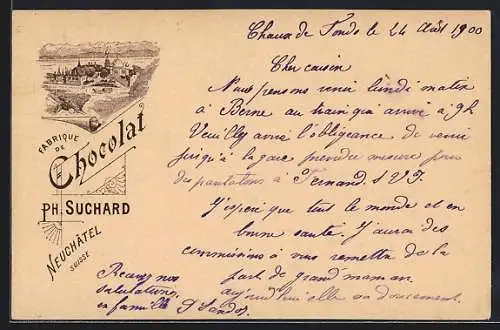 Chaux de Fonds le 24 Août 1900
Cher cousin
Nous pensons venir lundi matin
à Berne au train qui arrive à 9h
Veuillez avoir l'obligeance de venir
jusqu'à la gare prendre mesure pour
des pantalons à Fernand S.V.P.
J'espère que tout le monde est en
bonne santé. J'aurai des
commissions à vous remettre de la
part de grand'maman
aujourd'hui elle va doucement.
Recevez nos
salutations,
en famille
Sandoz
FABRIQUE
DE
Chocolat
PH. SUCHARD
NEUCHÂTEL
SUISSE